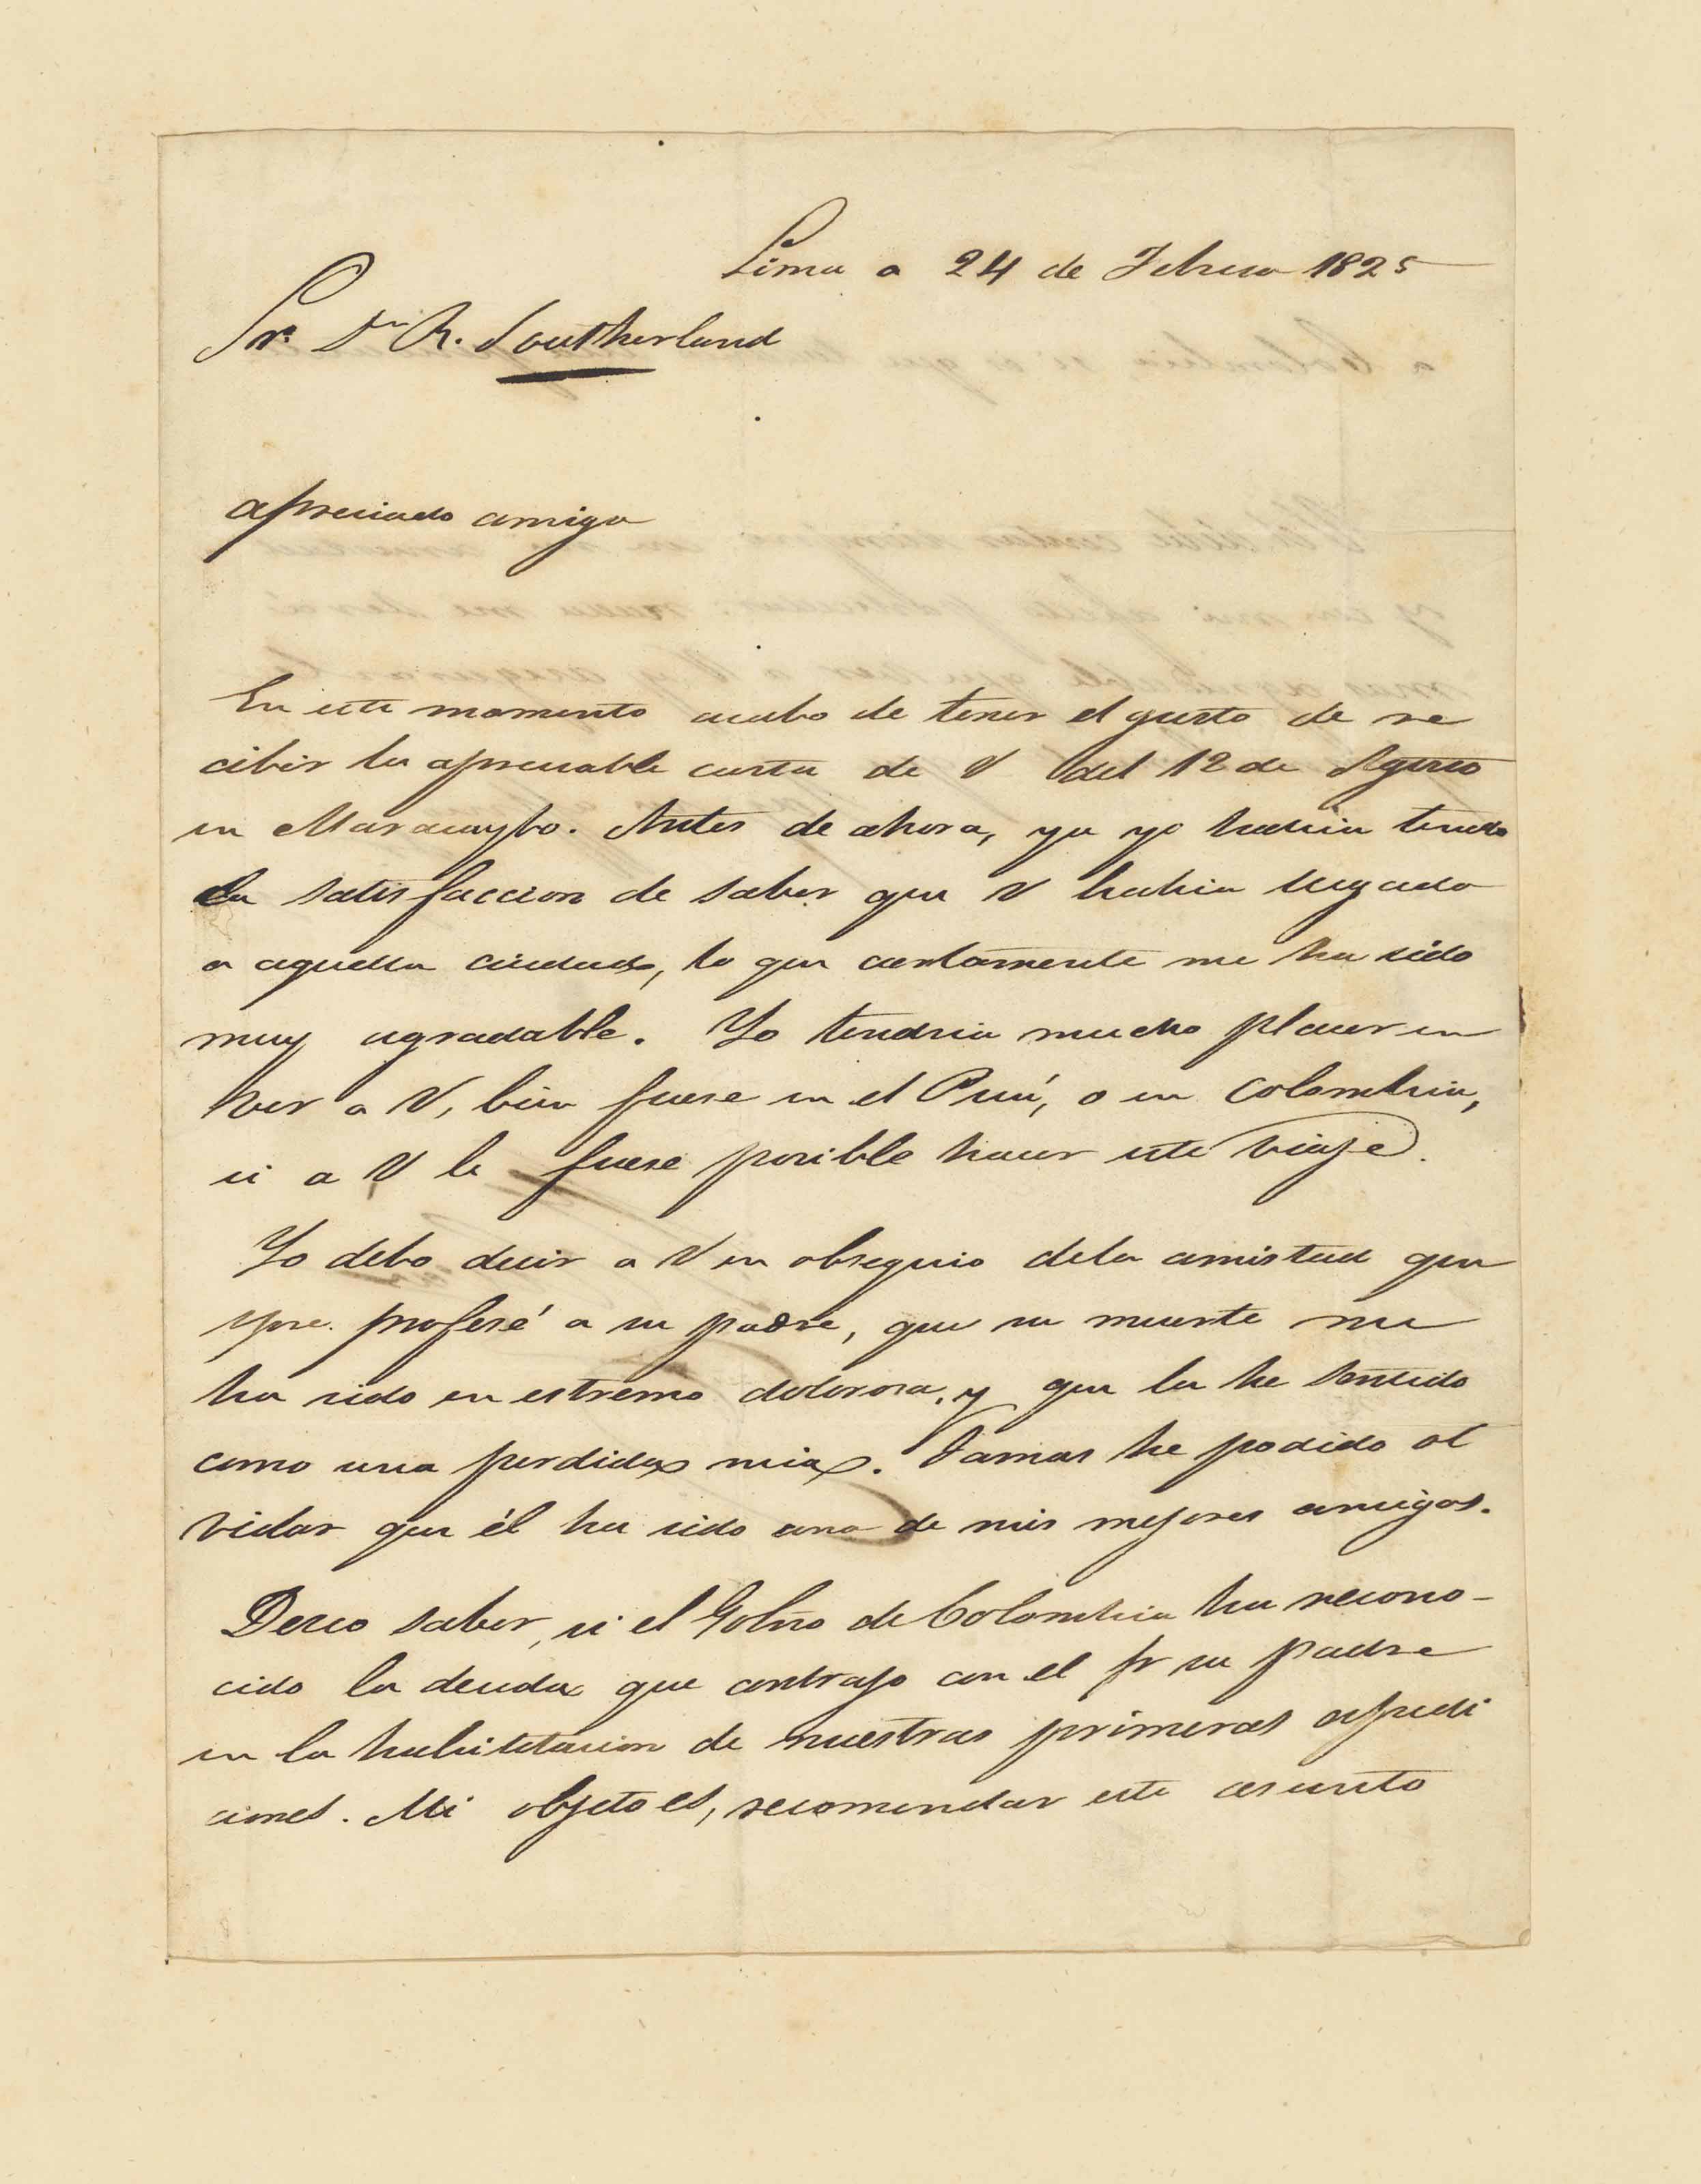 Lima a 24 de Febrero 1825
Sr. Dn R. Southerland
apreciado amigo
En este momento acabo de tener el gusto de re
cibir la apreciable carta de V del 12 de Agosto
en Maracaybo. Antes de ahora, ya yo habia tenido
la satisfaccion de saber que V habia llegado
a aquella ciudad, lo que ciertamente me ha sido
muy agradable. Yo tendria mucho placer en
ver a V, bien fuese en el Perú, o en Colombia,
si a V le fuese posible hacer este viaje.
Yo debo decir a V en obsequio dela amistad que
spre. profesé a su padre, que su muerte me
ha sido en estremo dolorosa, y que la he sentido
como una perdida mia. Jamas he podido ol
vidar que él ha sido uno de mis mejores amigos.
Deseo saber, si el Gobno de Colombia ha recono-
cido la deuda que contrajo con el Sr su padre
en la habilitacion de nuestras primeras espedi
ciones. Mi objeto es, recomendar este asunto